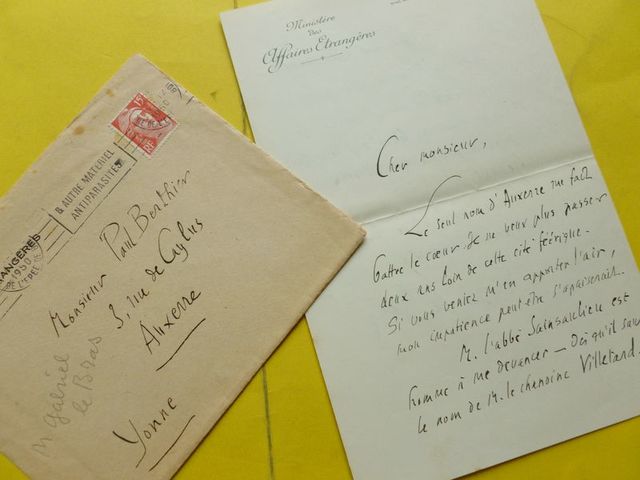 Ministère
des
Affaires Etrangères
Cher monsieur,
Le seul nom d'Auxerre me fait
battre le cœur. Je ne veux plus passer
deux ans loin de cette cité féérique.
Si vous veniez m'en apporter l'air,
mon impatience peut-être s'apaiserait.
M. l'abbé Sainsaulieu est
homme à me devancer — Dès qu'il saura
le nom de M. le chanoine Villetard.
& AUTRE MATERIEL
ANTIPARASITES
1950
Monsieur Paul Berthier
3, rue de Caylus
Auxerre
Yonne
M Gabriel
le Bras